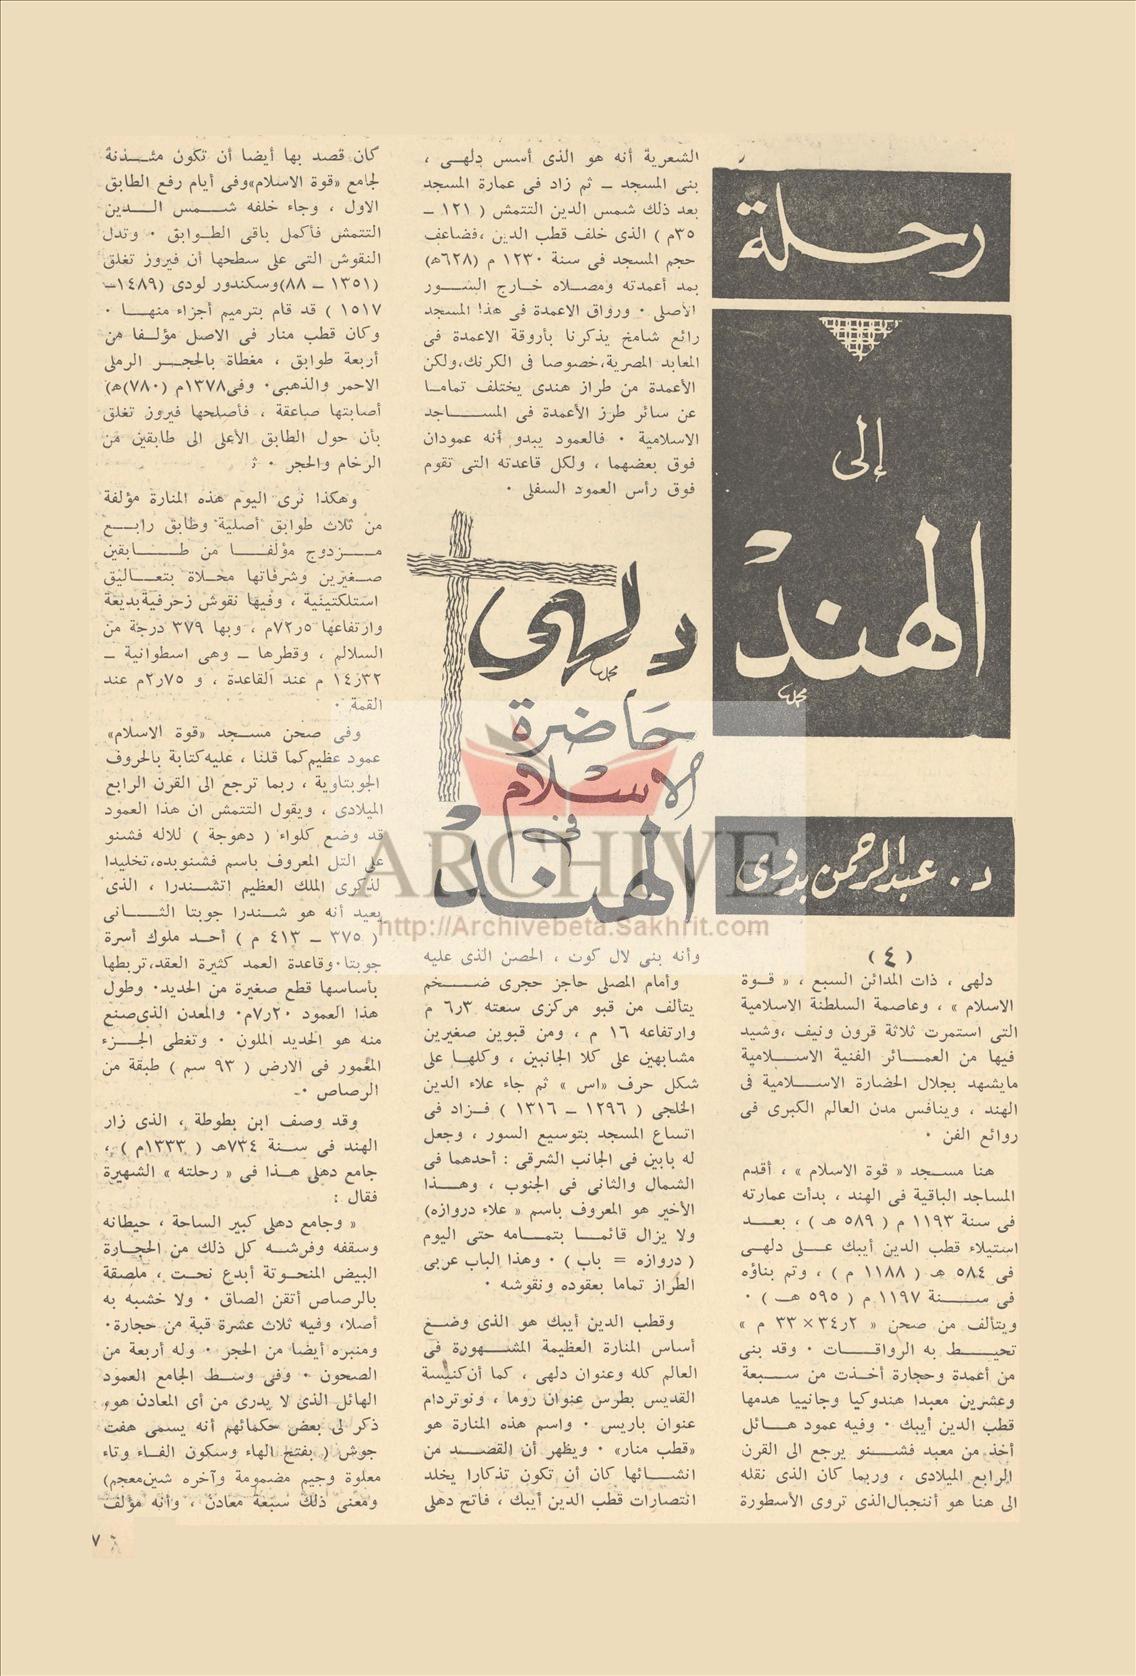 رحلة
إلى
الهند
محمد
د. عبدالرحمن بدوى
دلهى
محمد
حاضرة
الاسلام
فى
الهند
( ٤ )
دلهى ، ذات المدائن السبع ، « قـوة
الاسلام » ، وعاصمة السلطنة الاسلامية
التى استمرت ثلاثة قرون ونيف ،وشيد
فيها من العمـائر الفنية الاسـلامية
مايشهد بجلال الحضارة الاسـلامية فى
الهند ، وينافس مدن العالم الكبرى فى
روائع الفن ٠
هنا مسـجد « قوة الاسلام » ، أقدم
المساجد الباقية فى الهند ، بدأت عمارته
فى سنة ١١٩٣ م ( ٥٨٩ هـ ) ، بعـد
استيلاء قطب الدين أيبك عـلى دلهى
فى ٥٨٤ هـ ( ١١٨٨ م ) ، وتم بناؤه
فى سـنة ١١٩٧ م ( ٥٩٥ هـ ) ٠
ويتألف من صحن « ٢ر٣٤ × ٣٣ م »
تحيـط به الرواقـات ٠ وقد بنى
من أعمدة وحجارة أخـذت من سـبعة
وعشرين معبدا هندوكيا وجانييا هدمها
قطب الدين أيبك ٠ وفيه عمود هـائل
أخذ من معبد فشـنو يرجع الى القرن
الرابع الميلادى ، وربما كان الذى نقله
الى هنا هو أننجبالالذى تروى الأسطورة
الشعرية أنه هو الذى أسس دلهـى ،
بنى المسجد ـ ثم زاد فى عمارة المسجد
بعد ذلك شمس الدين التتمش ( ١٢١ ـ
٣٥م ) الذى خلف قطب الدين ،فضاعف
حجم المسجد فى سنة ١٢٣٠ م (٦٢٨هـ)
بمد أعمدته ومصـلاه خـارج السـور
الأصلى ٠ ورواق الاعمدة فى هذا المسجد
رائع شامخ يذكرنا بأروقة الاعمدة فى
المعابد المصرية،خصوصا فى الكرنك،ولكن
الأعمدة من طراز هندى يختلف تمامـا
عن سائر طرز الأعمدة فى المسـاجد
الاسلامية ٠ فالعمود يبدو أنه عمودان
فوق بعضهما ، ولكل قاعدته التى تقوم
فوق رأس العمود السفلى ٠
وأنه بنى لال كوت ، الحصن الذى عليه
وأمام المصلى حاجز حجرى ضـخم
يتألف من قبو مركزى سعته ٣ر٦ م
وارتفاعه ١٦ م ، ومن قبوين صغيرين
مشابهين على كلا الجانبين ، وكلهـا على
شكل حرف «اس» ثم جاء علاء الدين
الخلجى ( ١٢٩٦ ـ ١٣١٦ ) فـزاد فى
اتساع المسجد بتوسيع السور ، وجعل
له بابين فى الجانب الشرقى : أحدهما فى
الشمال والثانى فى الجنوب ، وهـذا
الأخير هو المعروف باسم « علاء دروازه)
ولا يزال قائمـا بتمـامه حتى اليوم
( دروازه = باب ) ٠ وهذا الباب عربى
الطراز تماما بعقوده ونقوشه ٠
وقطب الدين أيبك هو الذى وضـع
أساس المنارة العظيمة المشـهورة فى
العالم كله وعنوان دلهى ، كما أن كنيسة
القديس بطرس عنوان روما ، ونوتردام
عنوان باريس ٠ واسم هذه المنارة هو
«قطب منار» ٠ ويظهر أن القصـد من
انشـائها كان أن تكون تذكارا يخلد
انتصارات قطب الدين أيبك ، فاتح دهلى
كان قصد بها أيضا أن تكون مئـذنة
لجامع «قوة الاسلام»وفى أيام رفع الطابق
الاول ، وجاء خلفه شـمس الـدين
التتمش فأكمل باقى الطـوابق ٠ وتدل
النقوش التى على سطحها أن فيروز تغلق
(١٣٥١ ـ ٨٨)وسكندور لودى (١٤٨٩ـ
١٥١٧ ) قد قام بترميم أجزاء منهـا ٠
وكان قطب منار فى الاصل مؤلـفا من
أربعة طوابق ، مغطاة بالحجـر الرملى
الاحمر والذهبى٠ وفى١٣٧٨م (٧٨٠)هـ)
أصابتها صاعقة ، فأصلحها فيروز تغلق
بأن حول الطابق الأعلى الى طابقين من
الرخام والحجر ٠
وهكذا نرى اليوم هذه المنارة مؤلفة
من ثلاث طوابق أصلية وطابق رابـع
مـزدوج مؤلفـا من طـابقين
صـغيرين وشرفاتها محلاة بتعـاليق
استلكتينية ، وفيها نقوش زحرفيةبديعة
وارتفاعها ٥ر٧٢م ، وبها ٣٧٩ درجة من
السلالم ، وقطرها ـ وهى اسطوانية ـ
٣٢ر١٤ م عند القاعدة ، و ٧٥ر٢م عند
القمة ٠
وفى صحن مسـجد «قوة الاسلام»
عمود عظيم كما قلنا ، عليه كتابة بالحروف
الجوبتاوية ، ربما ترجع الى القرن الرابع
الميلادى ، ويقول التتمش ان هذا العمود
قد وضع كلواء ( دهوجة ) للاله فشنو
على التل المعروف باسم فشنوبده،تخليدا
لذكرى الملك العظيم اتشـندرا ، الذى
يعيد أنه هو شـندرا جوبتا الثـانى
( ٣٧٥ ـ ٤١٣ م ) أحـد ملوك أسرة
جوبتا٠وقاعدة العمد كثيرة العقد،تربطها
بأساسها قطع صغيرة من الحديد٠ وطول
هذا العمود ٢٠ر٧م٠ والمعدن الذى صنع
منه هو الحديد الملون ٠ وتغطى الجـزء
المغمور فى الارض ( ٩٣ سم ) طبقة من
الرصاص ٠ـ
وقد وصف ابن بطوطة ، الذى زار
الهند فى سـنة ٧٣٤هـ ( ١٣٣٣م ) ،
جامع دهلى هـذا فى « رحلته » الشهيرة
فقال :
« وجامع دهلى كبير الساحة ، حيطانه
وسقفه وفرشـه كل ذلك من الحجـارة
البيض المنحـوتة أبدع نحـت ، ملصقة
بالرصاص أتقن الصاق ٠ ولا خشبه به
أصلا، وفيه ثلاث عشرة قبة من حجارة٠
ومنبره أيضا من الحجر ٠ وله أربعة من
الصحون ٠ وفى وسـط الجامع العمود
الهائل الذى لا يدرى من أى المعادن هو،
ذكر لى بعض حكمائهم أنه يسمى هفت
جوش ( بفتح الهاء وسكون الفـاء وتاء
معلوة وجيم مضمومة وآخره شين معجم)
ومعنى ذلك سبعة معادن ، وأنه مؤلف
٧
ARCHIVE
http://Archivebeta.Sakhrit.com